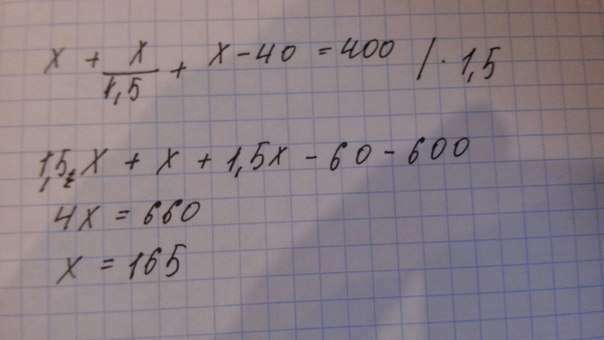 x + x/1,5 + x - 40 = 400 / · 1,5
1,5 x + x + 1,5x - 60 - 600
4x = 660
x = 165